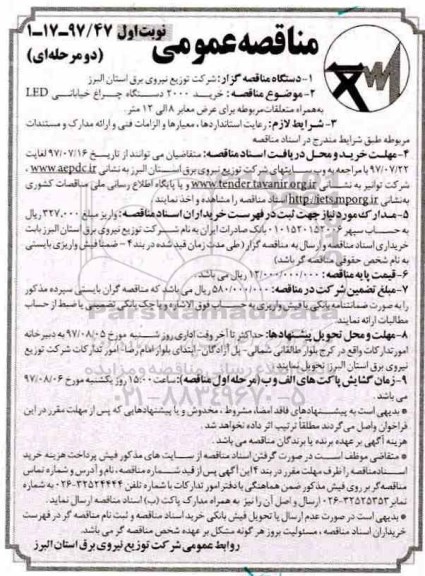 نوبت اول ۹۷/۴۷-۱۷-۱
مناقصه عمومی
(دو مرحله‌ای)
۱- دستگاه مناقصه گزار: شرکت توزیع نیروی برق استان البرز
۲- موضوع مناقصه: خرید ۲۰۰۰ دستگاه چراغ خیابانی LED
به همراه متعلقات مربوطه برای عرض معابر ۸ الی ۱۲ متر.
۳- شرایط لازم: رعایت استانداردها، معیارها و الزامات فنی و ارائه مدارک و مستندات
مربوطه طبق شرایط مندرج در اسناد مناقصه
۴- مهلت خرید و محل دریافت اسناد مناقصه: متقاضیان می توانند از تاریخ ۹۷/۰۷/۱۶ لغایت
۹۷/۰۷/۲۲ با مراجعه به وب سایتهای شرکت توزیع نیروی برق استان البرز به نشانی www.aepdc.ir ،
شرکت توانیر به نشانی www.tender.tavanir.org.ir و یا پایگاه اطلاع رسانی ملی مناقصات کشوری
به نشانی http://iets.mporg.ir اسناد مناقصه را مشاهده و اخذ نمایند.
۵- مدارک مورد نیاز جهت ثبت در فهرست خریداران اسناد مناقصه: واریز مبلغ ۳۲۷.۰۰۰ ریال
به حساب سپهر ۰۱۰۱۵۲۰۱۵۲۰۰۶ بانک صادرات ایران به نام شرکت توزیع نیروی برق استان البرز بابت
خریداری اسناد مناقصه و ارسال به مناقصه گزار (طی مدت زمان قید شده در بند ۴ - ضمنا فیش واریزی بایستی
به نام شخص حقوقی مناقصه گر باشد)
۶- قیمت پایه مناقصه: ۱۲/۰۰۰/۰۰۰/۰۰۰ ریال می باشد.
۷- مبلغ تضمین شرکت در مناقصه: ۵۸۰/۰۰۰/۰۰۰ ریال می باشد که مناقصه گران بایستی سپرده مذکور
را به صورت ضمانتنامه بانکی یا فیش واریزی به حساب فوق الاشاره و یا چک بانکی تضمینی یا ضبط از حساب
مطالبات ارائه نمایند.
۸- مهلت و محل تحویل پیشنهادها: حداکثر تا آخر وقت اداری روز شنبه مورخ ۹۷/۰۸/۰۵ به دبیرخانه
امور تدارکات واقع در کرج بلوار طالقانی شمالی- پل آزادگان- ابتدای بلوار امام رضا- امور تدارکات شرکت توزیع
نیروی برق استان البرز تحویل نمایند.
۹- زمان گشایش پاکت های الف و ب (مرحله اول مناقصه): ساعت ۱۵:۰۰ روز یکشنبه مورخ ۹۷/۰۸/۰۶
می باشد.
* بدیهی است به پیشنهادهای فاقد امضاء، مشروط، مخدوش و یا پیشنهادهایی که پس از مهلت مقرر در این
فراخوان واصل می گردند مطلقا ترتیب اثر داده نخواهد شد.
هزینه آگهی بر عهده برنده یا برندگان مناقصه می باشد.
* متقاضی موظف است در صورت گرفتن اسناد مناقصه از سایت های مذکور فیش پرداخت هزینه خرید
اسناد مناقصه را ظرف مهلت مقرر در بند ۴ این آگهی پس از قید شماره مناقصه، نام و آدرس و شماره تماس
مناقصه گر بر روی فیش مذکور ضمن هماهنگی با دفتر امور تدارکات با شماره تلفن ۳۲۵۲۴۴۴۴-۰۲۶ به شماره
نمابر ۳۲۵۲۵۳۵۳-۰۲۶ ارسال و اصل آن را نیز به همراه مدارک پاکت (ب) اسناد مناقصه ارسال نماید.
* بدیهی است در صورت عدم ارسال یا تحویل فیش بانکی خرید اسناد مناقصه و ثبت نام مناقصه گر در فهرست
خریداران اسناد مناقصه، مسئولیت بروز هر گونه مشکل بر عهده شخص مناقصه گر می باشد.
روابط عمومی شرکت توزیع نیروی برق استان البرز
ParsNamadData
۰۲۱-۸۸۳۴۹۶۷۰-۵